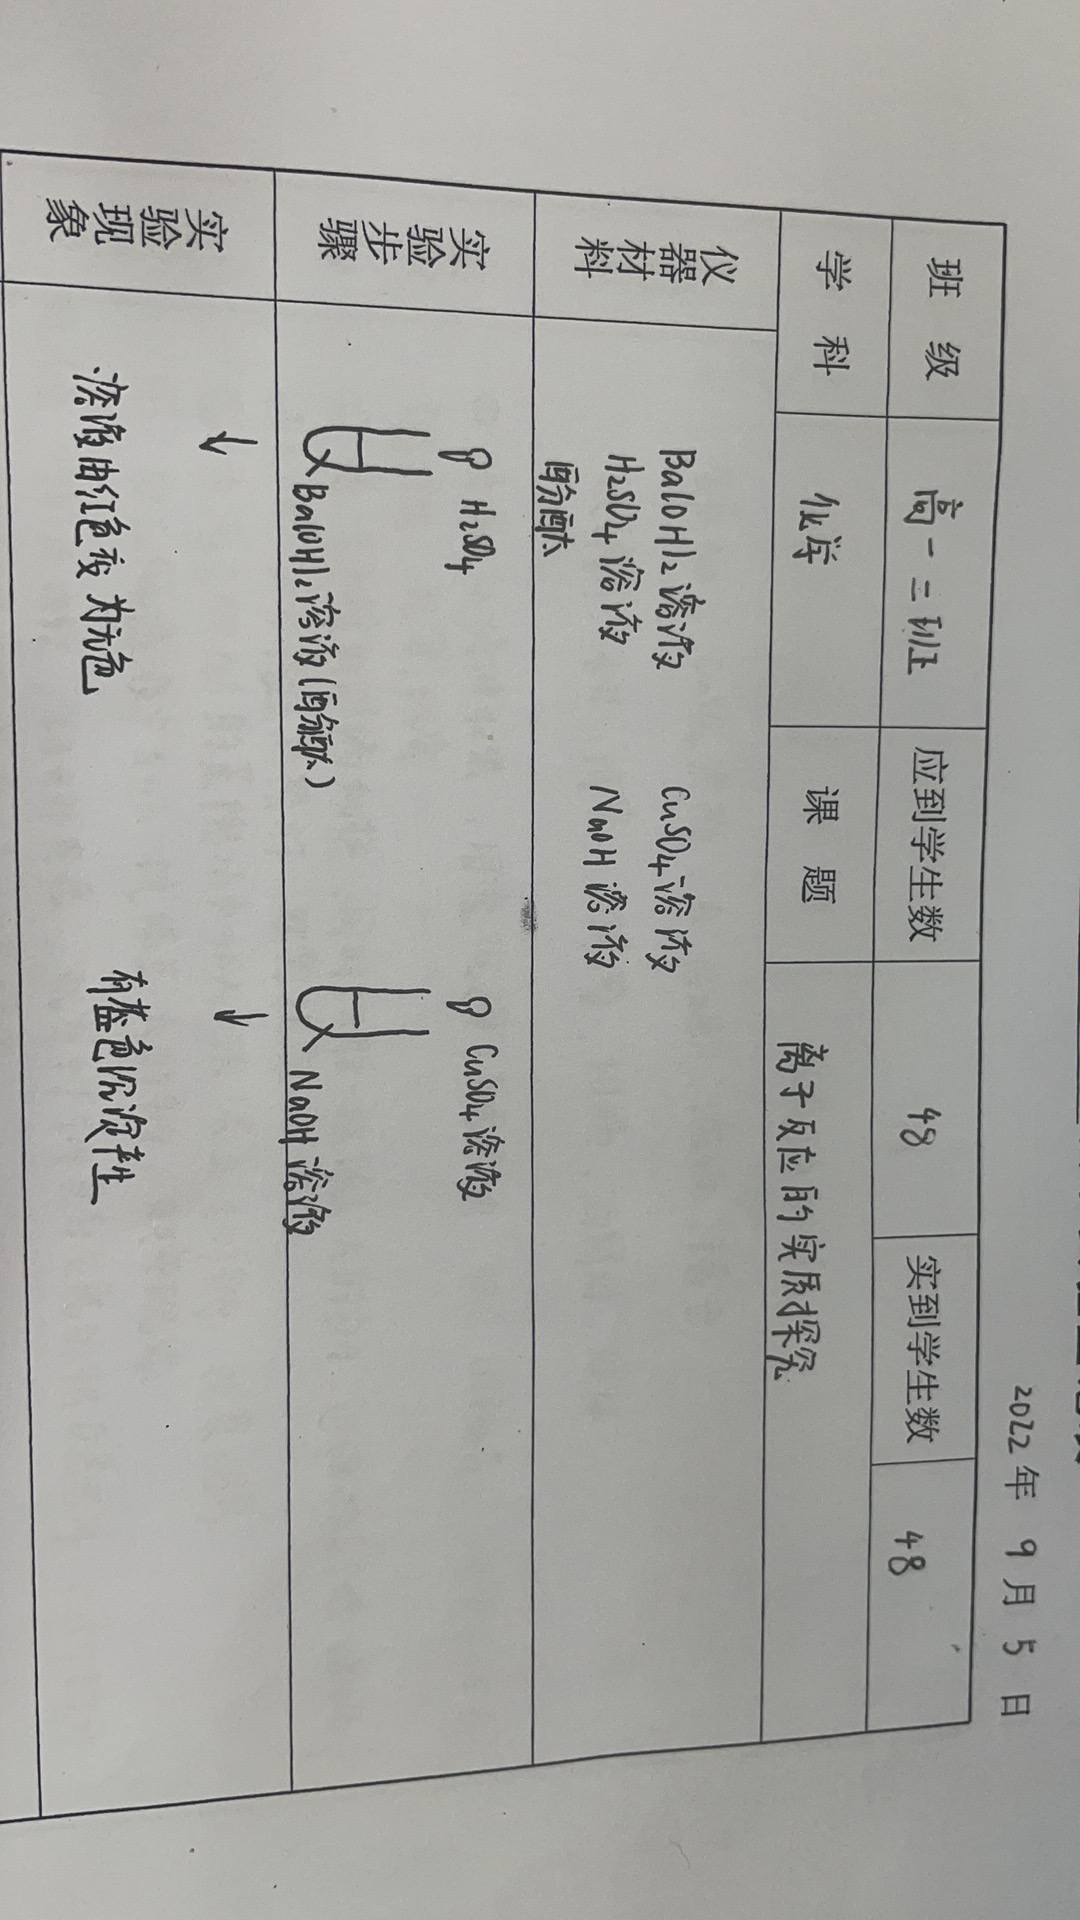 2022年 9月 5日
班 级 高一二班 应到学生数 48 实到学生数 48
学 科 化学 课 题 离子反应的实质探究
仪器材料
Ba(OH)2溶液 CuSO4溶液
H2SO4溶液 NaOH溶液
酚酞
实验步骤
H2SO4 CuSO4溶液
Ba(OH)2溶液(酚酞) NaOH溶液
实验现象
↓ ↓
溶液由红色变为无色 有蓝色沉淀产生